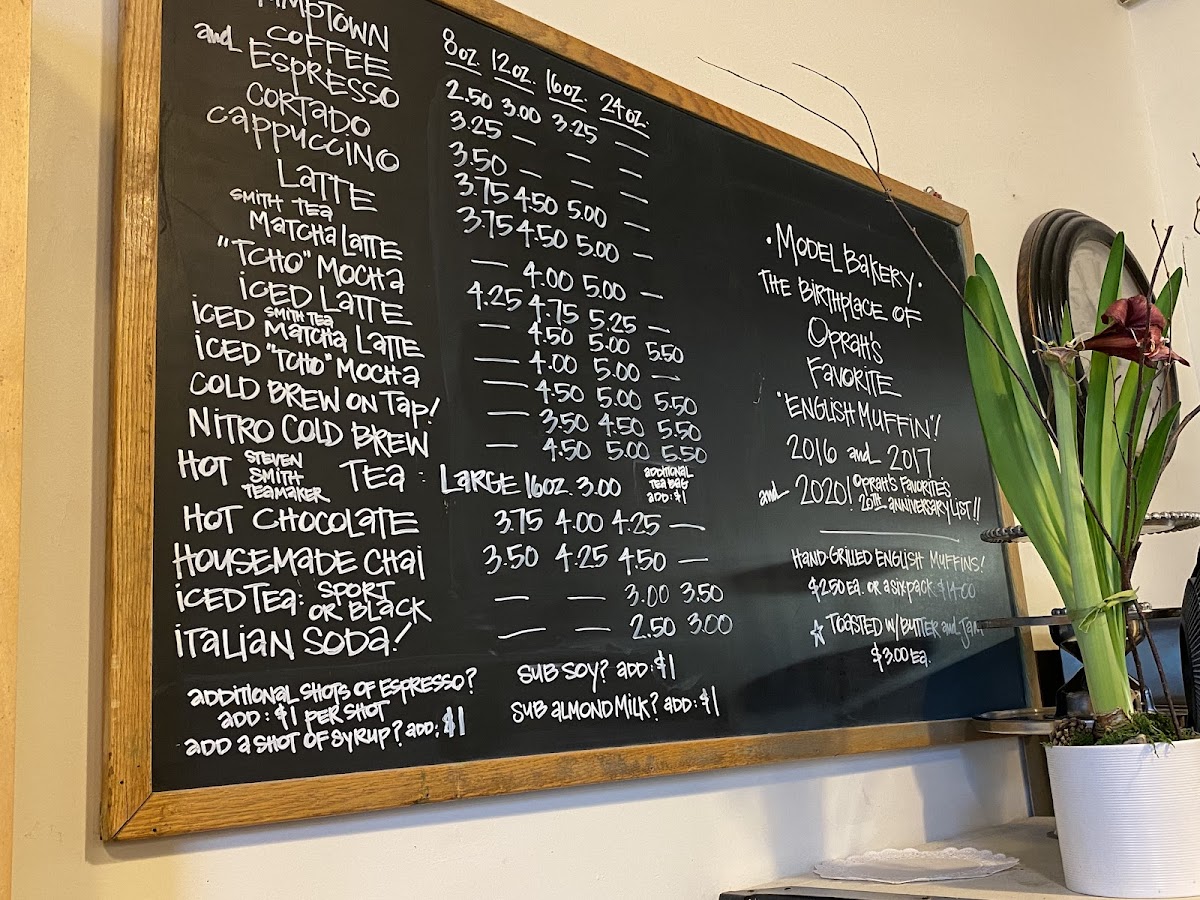 8oz. 12oz. 16oz. 24oz.
COFFEE 2.50 3.00 3.25 —
and ESPRESSO 3.25 — — —
CORTADO 3.50 — — —
CAPPUCCINO 3.75 4.50 5.00 —
LATTE 3.75 4.50 5.00 —
SMITH TEA
MATCHA LATTE — 4.00 5.00 —
"TCHO" MOCHA 4.25 4.75 5.25 —
ICED LATTE — 4.50 5.00 5.50
ICED SMITH TEA MATCHA LATTE — 4.00 5.00 —
ICED "TCHO" MOCHA — 4.50 5.00 5.50
COLD BREW ON TAP! — 3.50 4.50 5.50
NITRO COLD BREW — 4.50 5.00 5.50
HOT STEVEN SMITH TEAMAKER TEA: LARGE 16oz. 3.00 ADDITIONAL TEA BAG ADD: $1
HOT CHOCOLATE 3.75 4.00 4.25 —
HOUSEMADE CHAI 3.50 4.25 4.50 —
ICED TEA: SPORT OR BLACK — — 3.00 3.50
ITALIAN SODA! — — 2.50 3.00
ADDITIONAL SHOTS OF ESPRESSO?
ADD: $1 PER SHOT
ADD A SHOT OF SYRUP? ADD: $1
SUB SOY? ADD: $1
SUB ALMOND MILK? ADD: $1
• MODEL BAKERY •
THE BIRTHPLACE OF
OPRAH'S
FAVORITE
"ENGLISH MUFFIN"!
2016 and 2017
and 2020! OPRAH'S FAVORITE'S
25TH ANNIVERSARY LIST!!
HAND-GRILLED ENGLISH MUFFINS!
$2.50 EA. OR A SIX PACK $14.00
☆ TOASTED W/ BUTTER and JAM
$3.00 EA.